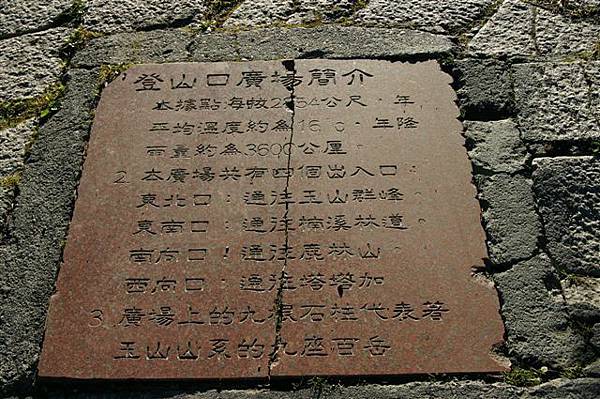 登山口廣場簡介
本據點海拔2554公尺，年
平均溫度約為16.0，年降
雨量約為3600公厘。
2.本廣場共有四個出入口：
東北口：通往玉山群峰。
東南口：通往楠溪林道。
南向口：通往鹿林山。
西向口：通往塔塔加
3.廣場上的九根石柱代表著
玉山山系的九座百岳